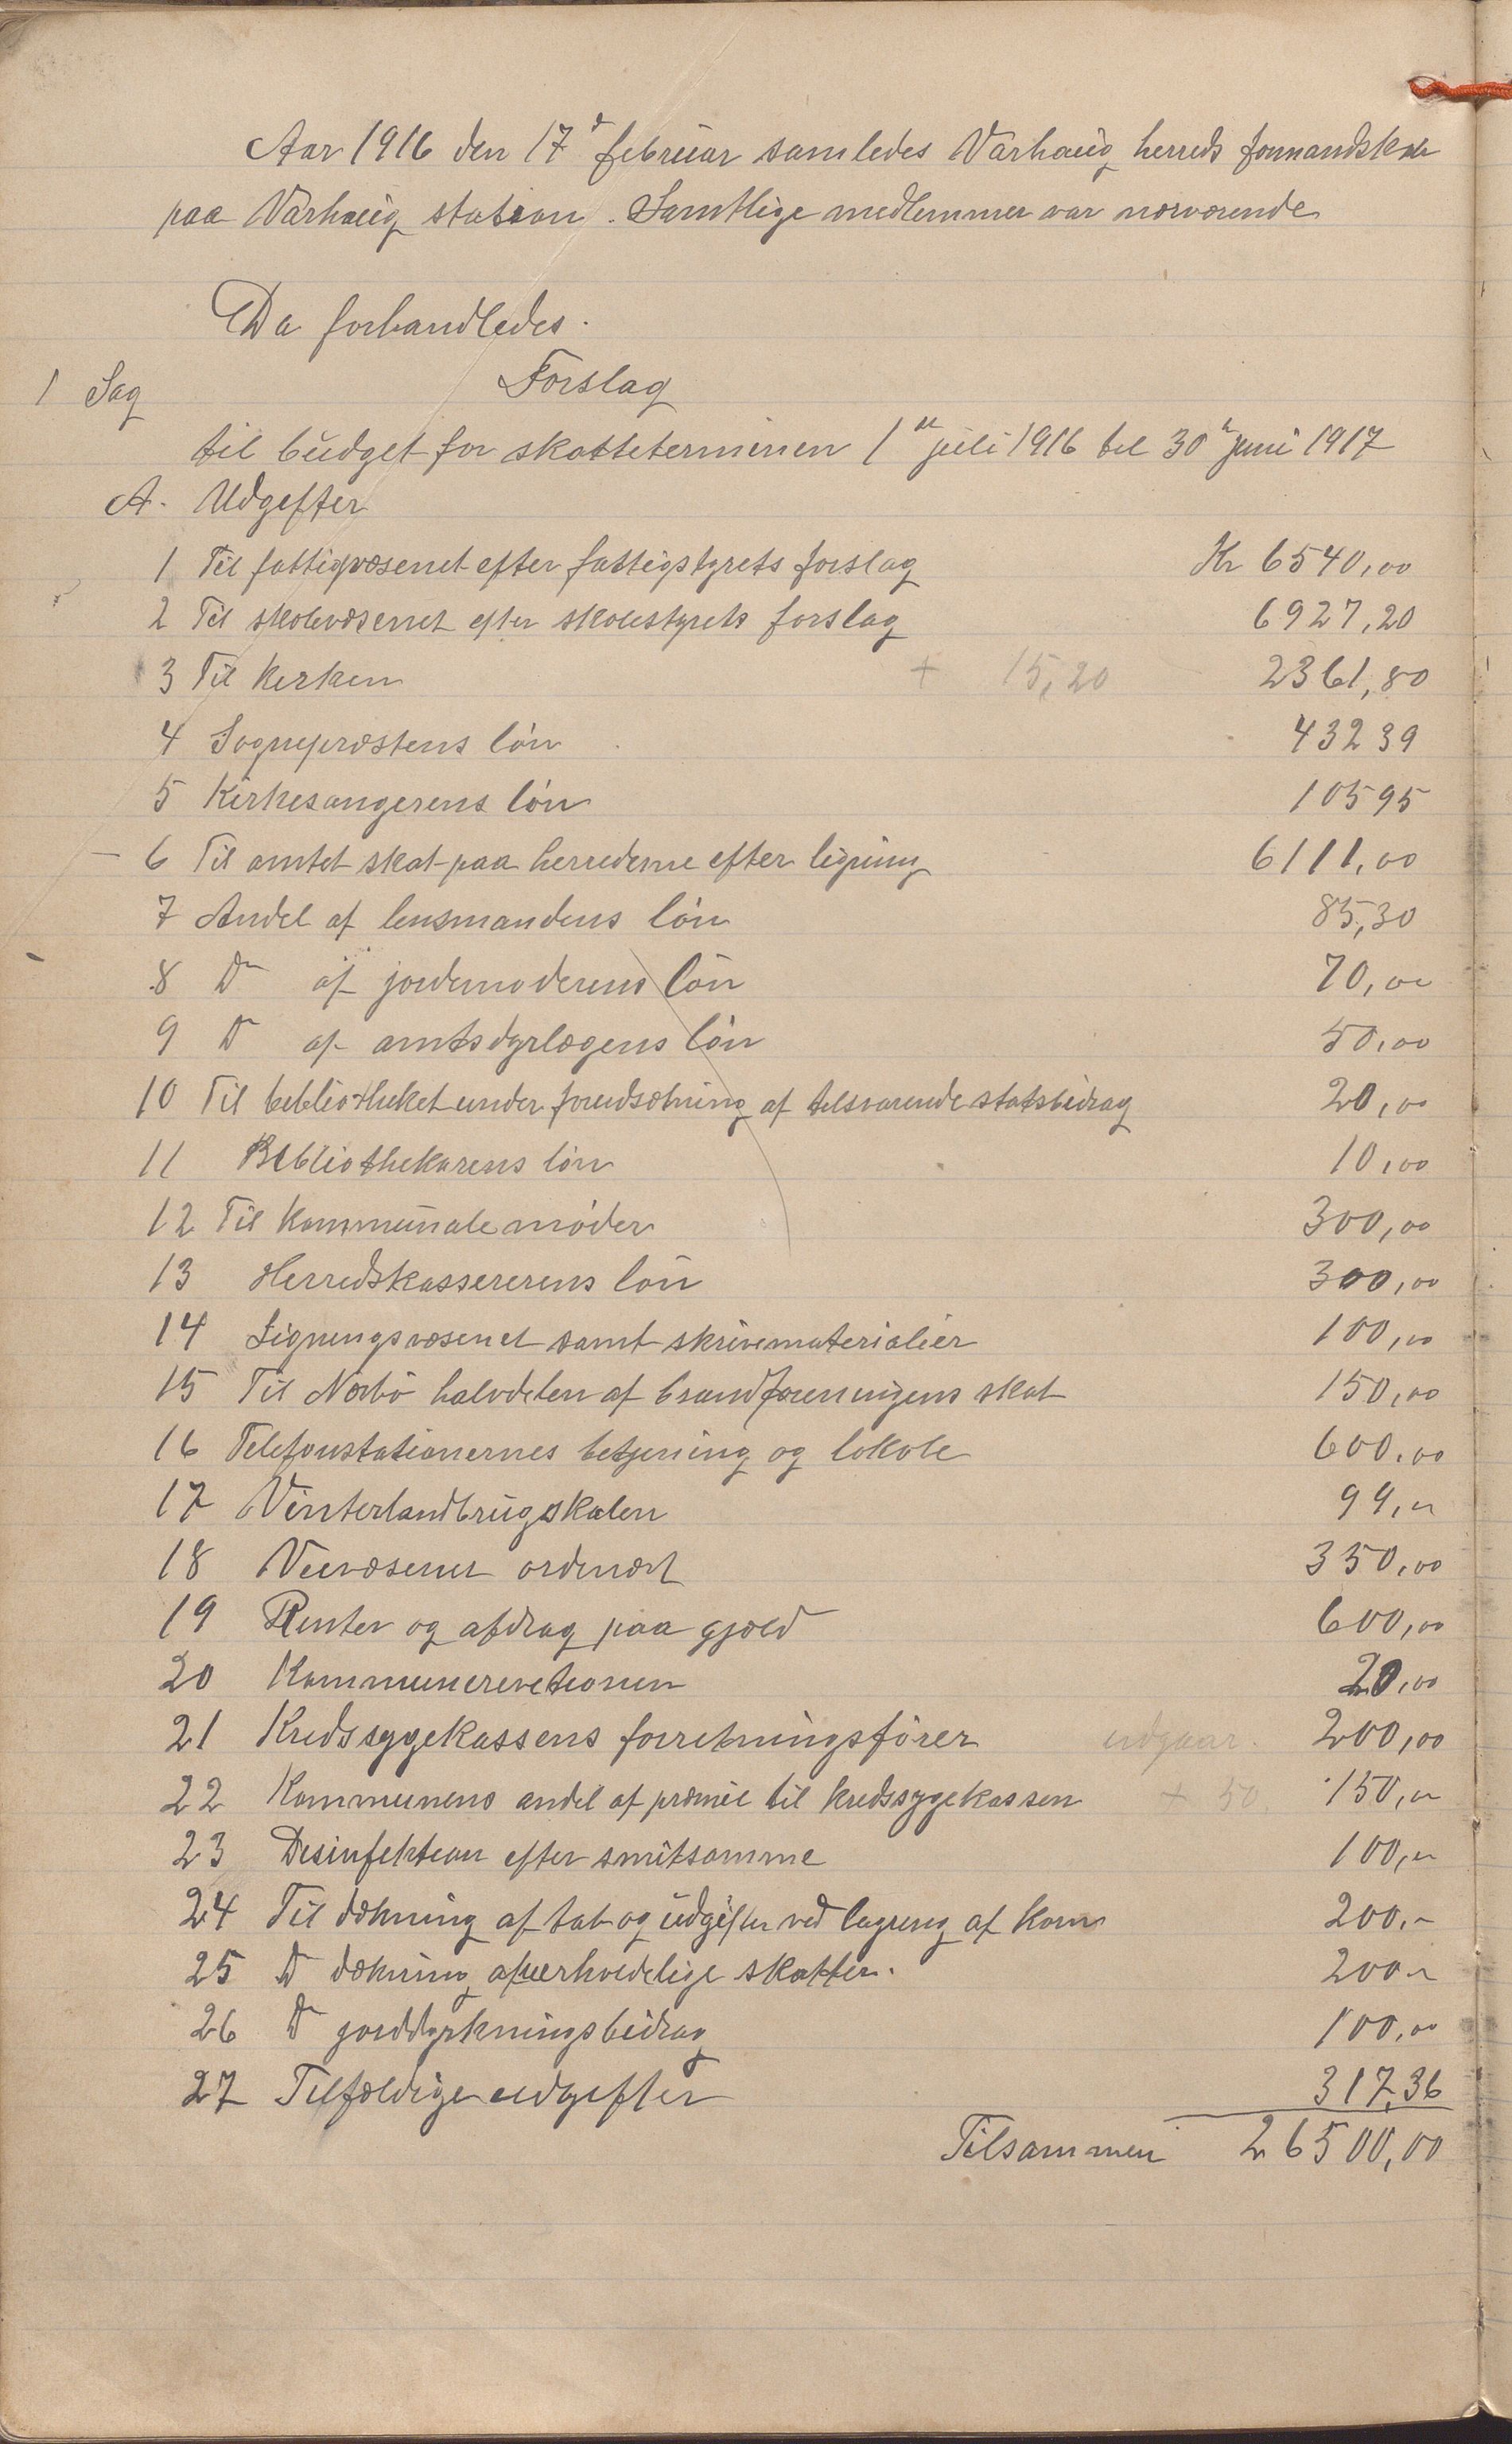 Aar 1916 den 17d februar samledes Varhaug herreds formandskab
paa Varhaug station. Samtlige medlemmer var nærværende
Da forhandledes.
1 Sag Forslag
til budget for skatteterminen 1ste juli 1916 til 30te juni 1917
A. Udgifter
1 Til fattigvæsenet efter fattigstyrets forslag Kr 6540,00
2 Til skolevæsenet efter skolestyrets forslag 6927,20
3 Til kirken + 15,20 2361,80
4 Sogneprestens løn 432 39
5 Kirkesangerens løn 105 95
6 Til amtet skat paa herrederne efter ligning 6111,00
7 Andel af lensmandens løn 85,30
8 Do af jordemoderens løn 70,00
9 Do af amtsdyrlægens løn 50,00
10 Til bibliotheket under forudsætning af tilsvarende statsbidrag 20,00
11 Bibliothekarens løn 10,00
12 Til kommunale møder 300,00
13 Herredskassererens løn 300,00
14 Ligningsvæsenet samt skrivematerialier 100,00
15 Til Nærbø halvdelen af brandforeningens skat 150,00
16 Telefonstationernes betjening og lokale 600,00
17 Vinterlandbrugskolen 99,00
18 Veivæsenet ordinært 350,00
19 Renter og afdrag paa gjæld 600,00
20 Kommunerevitionen 20,00
21 Kredssygekassens forretningsfører udgaar. 200,00
22 Kommunens andel af præmie til kredssygekassen + 50. 150,00
23 Desinfektion efter smitsomme 100,00
24 Til dækning af tab og udgifter ved lagring af korn 200,-
25 Do dækning af uerholdelige skatter. 200 -
26 Do jorddyrkningsbidrag 100,00
27 Tilfældige udgifter 317,36
Tilsammen 26500,00